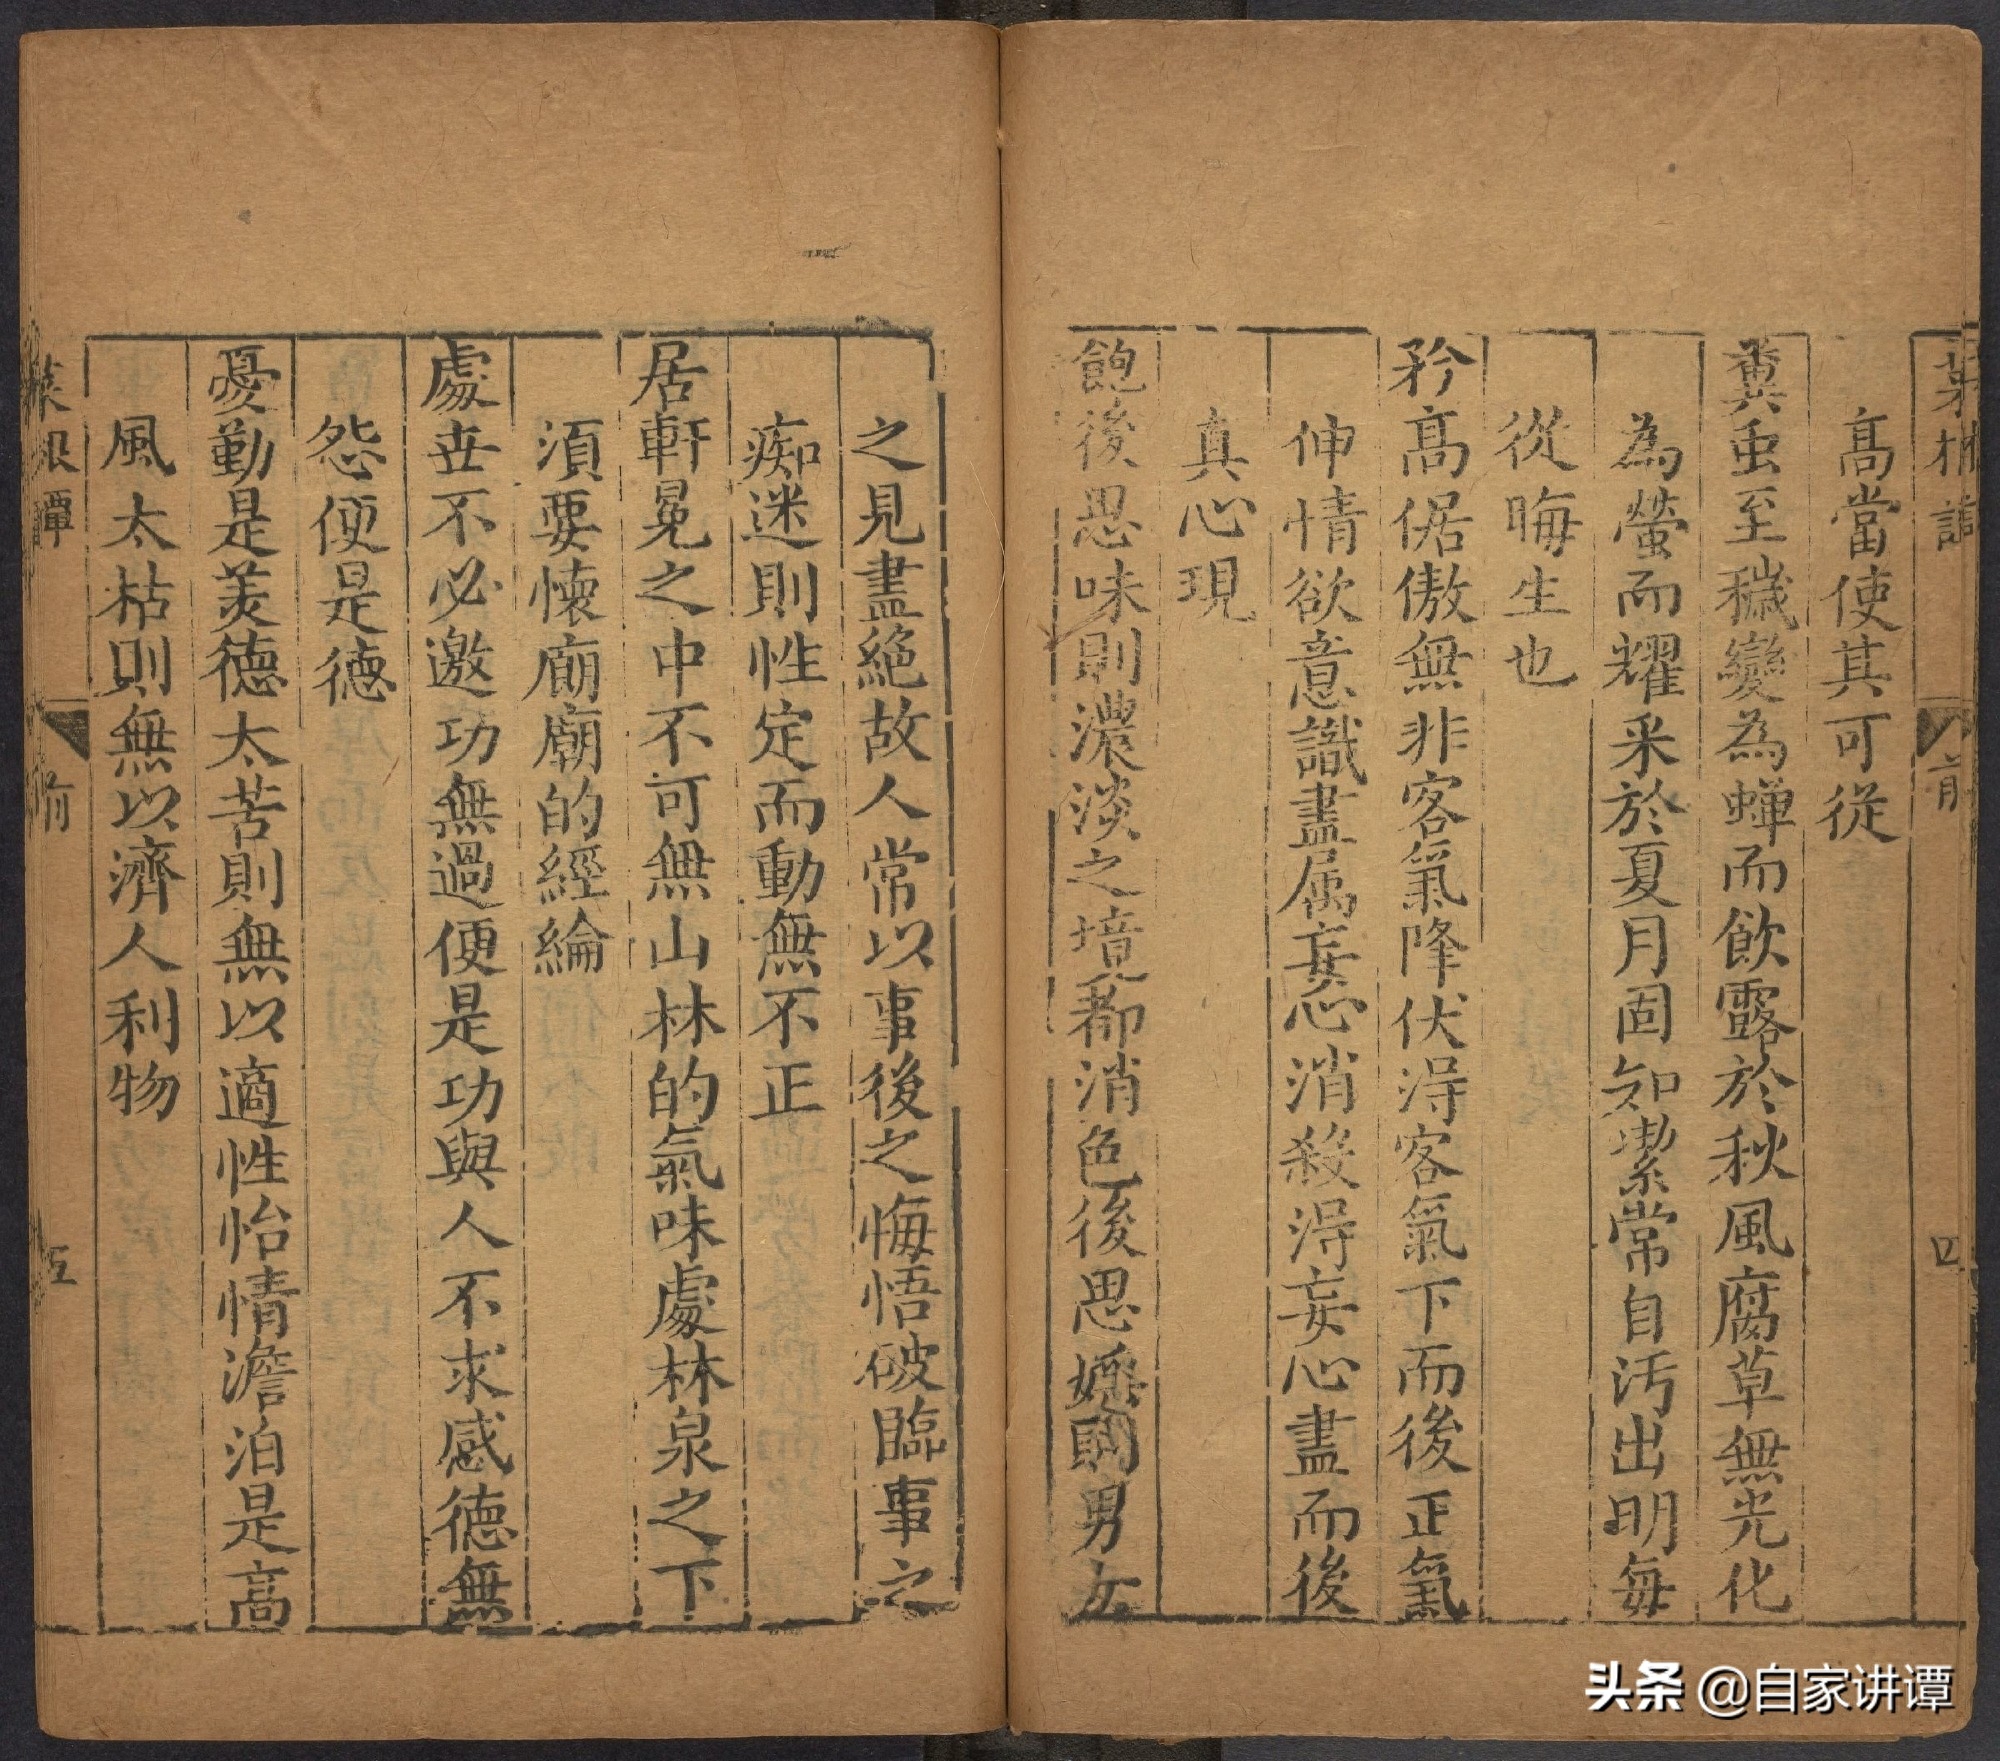 菜根譚
前
四
高當使其可從
糞虫至穢變為蟬而飲露於秋風腐草無光化
為螢而耀采於夏月固知潔常自汚出明每
從晦生也
矜高倨傲無非客氣降伏得客氣下而後正氣
伸情欲意識盡属妄心消殺得妄心盡而後
真心現
飽後思味則濃淡之境都消色後思婬則男女
之見盡絶故人常以事後之悔悟破臨事之
痴迷則性定而動無不正
居軒冕之中不可無山林的氣味處林泉之下
須要懷廊廟的經綸
處世不必邀功無過便是功與人不求感德無
怨便是德
憂勤是美德太苦則無以適性怡情澹泊是高
風太枯則無以濟人利物
菜根譚
前
五
头条 @自家讲谭